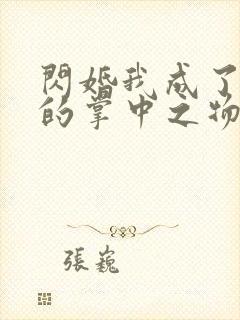 閃婚我成了
的掌中之物
張巍